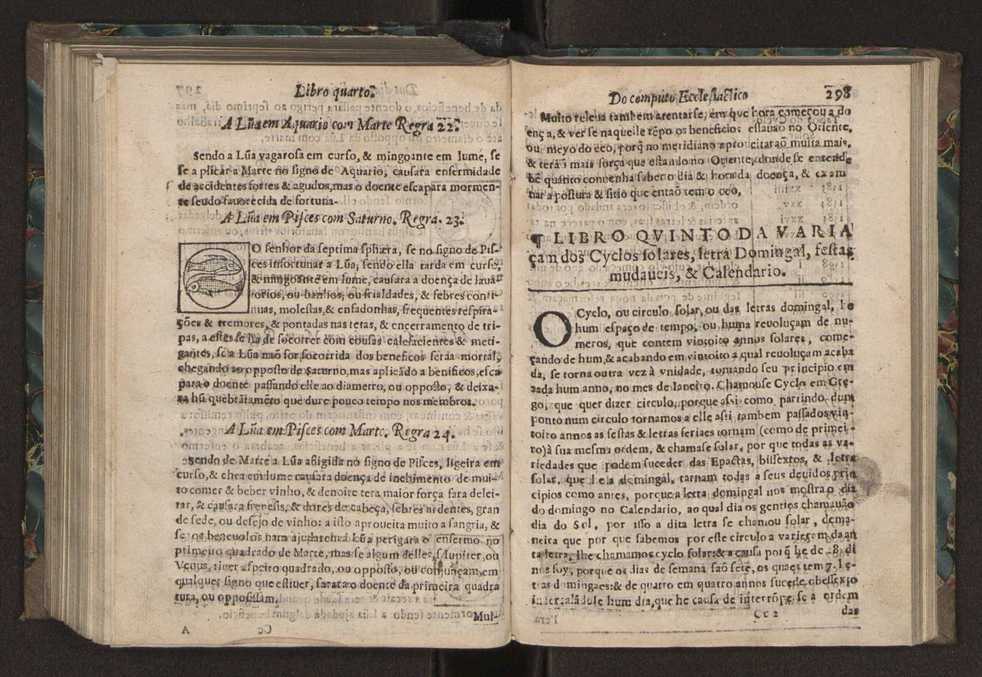 Libro quarto.
A Lũa em Aquario com Marte Regra 22.
Sendo a Lũa vagarosa em curso, & mingoante em lume, se
se aplicar a Marte no signo de Aquario, causara enfermidade
de accidentes fortes & agudos, mas o doente escapara mormen-
te sendo fauorecida de fortuna.
A Lũa em Pisces com Saturno, Regra. 23.
O senhor da septima sphæra, se no signo de Pis-
ces infortunar a Lũa, sendo ella tarda em curso,
& minguante em lume, causara a doença de laua-
torios, ou banhos, ou frialdades, & febres conti-
nuas, molestas, & enfadonhas, frequentes respira-
ções & tremores, & pontadas nas tetas, & encerramento de tri-
pas, a estes se ha de socorrer com cousas calefacientes & meti-
gantes, se a Lũa não for socorrida dos beneficos serão mortal,
chegando ao opposto de Saturno, mas aplicãdo a benificos, esca
para o doente passando elle ao diametro, ou opposto, & deixa-
ra hũ quebrãtamẽto que dure pouco tempo nos membros.
A Lũa em Pisces com Marte. Regra 24.
Sendo de Marte a Lũa afligida no signo de Pisces, ligeira em
curso, & chea em lume causara doença de inchimento de mui-
to comer & beber vinho, & de noite tera maior força fara delei-
rar, & causara frenesis, & dores de cabeça, febres ardentes, gran
de sede, ou desejo de vinho: a isso aproueita muito a sangria, &
se os beneuolos nam ajudarem a Lũa perigara o enfermo no
primeiro quadrado de Marte, mas se algum delles, Iupiter, ou
Venus, tiuer aspeito quadrado, ou opposto, ou conjunçam, em
qualquer signo que estiuer, sarara o doente da primeira quadra
tura, ou opposisam.
Mui-
A Cc
Do computo Ecclesiastico 298
Muito releua tambem atentarse, em que hora começou a do
ença, & ver se naquelle tẽpo os beneficios estauão no Oriente,
ou meyo do ceo, porq̃ no meridiano aproueitaraõ muita mais,
& teraõ mais força que estando no Oriente, donde se entende
bẽ quanto conuenha saber o dia & hora da doença, & exami
nar a postura & sitio que entaõ tem o ceo.
¶ LIBRO QVINTO DA VARIA
çam dos Cyclos solares, letra Domingal, festas
mudaueis, & Calendario.
O Cyclo, ou circulo solar, ou das letras domingal, he
hum espaço de tempo, ou huma reuoluçam de nu-
meros, que contem vintoito annos solares, come-
çando de hum, & acabando em vintoito a qual reuoluçam acaba
da, se torna outra vez à vnidade, tomando seu principio em
cada hum anno, no mes de Ianeiro. Chamouse Cyclo em Gre-
go, que quer dizer circulo, porque assi como partindo dum
ponto num circulo tornamos a elle assi tambem passados vin-
toito annos as festas & letras feriaes tornam (como de primei-
ro) à sua mesma ordem, & chamase solar, por que todas as va-
riedades que podem suceder das Epactas, bissextos, & letra
solar, que he la domingal, tornam todas a seus deuidos prin
cipios como antes, porque a letra domingal nos mostra o dia
do domingo no Calendario, ao qual dia os gentios chamauão
dia do Sol, por isso a dita letra se chamou solar, dema-
neira que por que sabemos por este circulo a variagem da an
ta letra, lhe chamamos cyclo solar: & a causa porq̃ he de 28, di
nos soy, porque os dias de semana saõ sete, os quaes tem 7. le-
tras domingaes: & de quatro em quatro annos sucede o bissexto
intercalãdose hum dia, que he causa de interrõper se a ordem
Cc 2 das